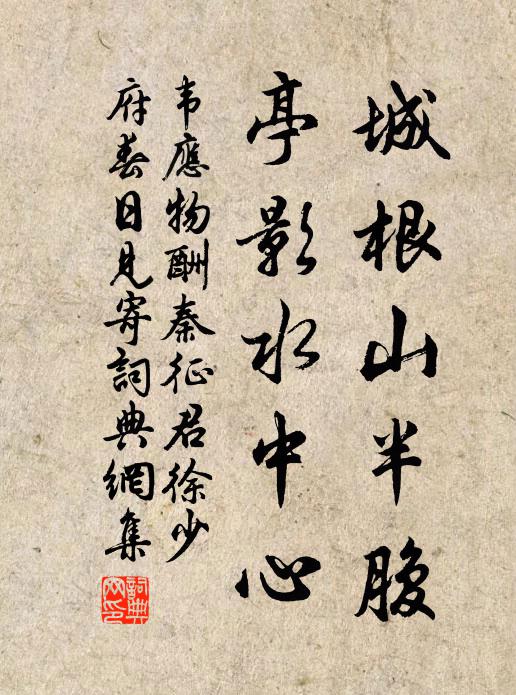 城根山半腹
亭影水中心
韦應物酬秦征君徐少
府春日見寄詞典網集
詞典网印